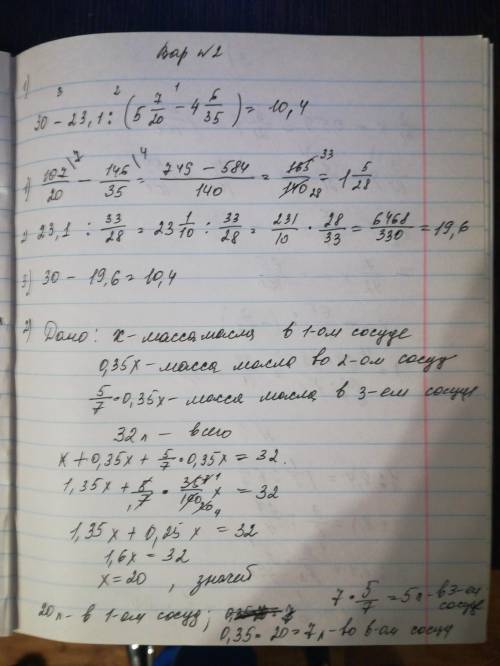 Вар №2
1)
30 - 23,1 : (5 7/20 - 4 6/35) = 10,4
1) 107/20 - 146/35 = 749 - 584/140 = 165/140 = 1 5/28
2 23,1 : 33/28 = 23 1/10 : 33/28 = 231/10 · 28/33 = 6468/330 = 19,6
3) 30 - 19,6 = 10,4
2) Дано: x - масса масла в 1-ом сосуде
0,35x - масса масла во 2-ом сосуд
5/7 · 0,35x - масса масла в 3-ем сосуде
32 л - всего
x + 0,35x + 5/7 · 0,35x = 32.
1,35x + 5/7 · 35/100 x = 32
1,35x + 0,25x = 32
1,6x = 32
x = 20 , значит
7 · 5/7 = 5л - в 3-ом сосуде
20л - в 1-ом сосуд;
0,35 · 20 = 7л - во в-ом сосуд